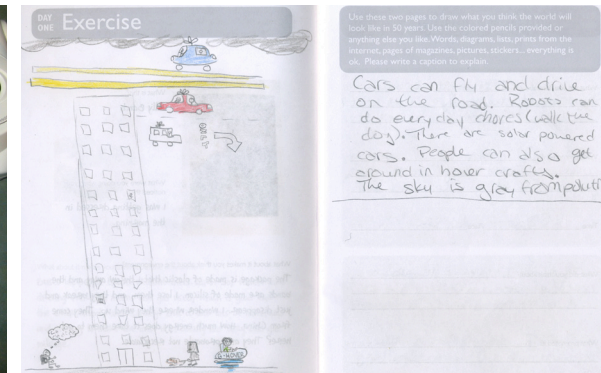 DAY
ONE Exercise
Use these two pages to draw what you think the world will
look like in 50 years. Use the colored pencils provided or
anything else you like. Words, diagrams, lists, prints from the
internet, pages of magazines, pictures, stickers... everything is
ok. Please write a caption to explain.
Cars can fly and drive
on the road. Robots can
do everyday chores (walk the
dog). There are solar powered
cars. People can also get
around in hover crafts.
The sky is gray from poluti